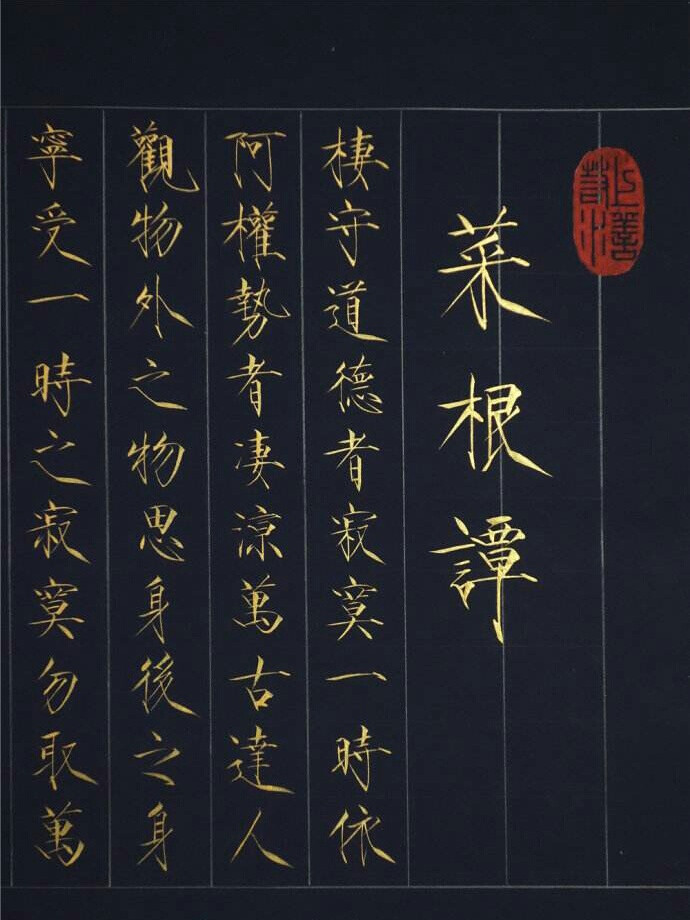 上善
菜根譚
棲守道德者寂寞一時依
阿權勢者凄涼萬古達人
觀物外之物思身後之身
寧受一時之寂寞勿取萬